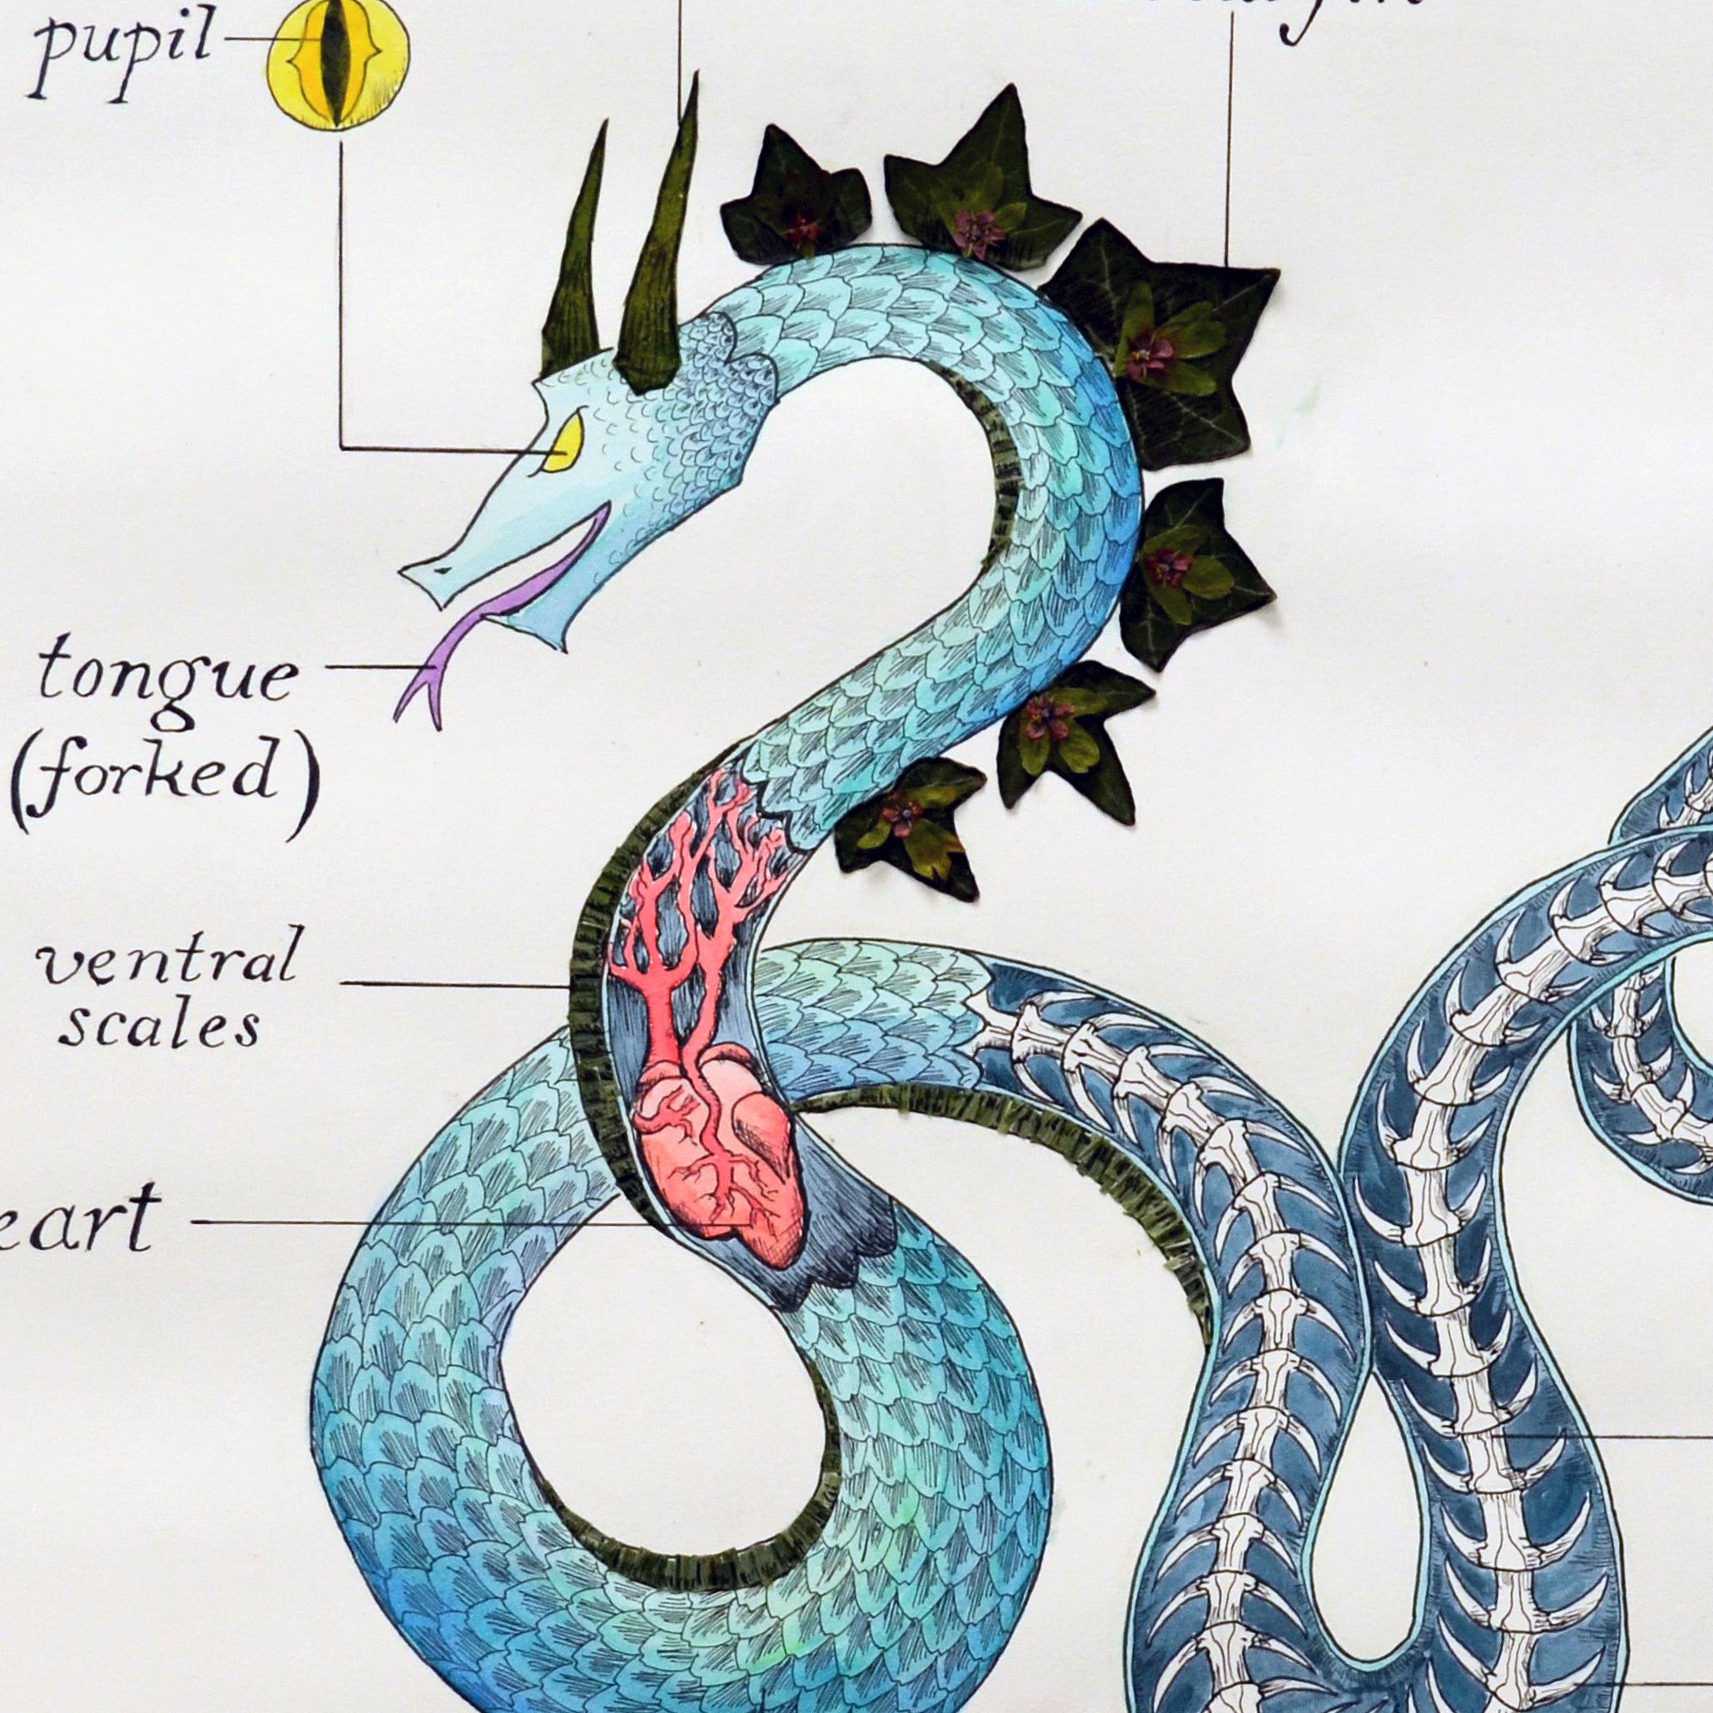 pupil
tongue
(forked)
ventral
scales
eart